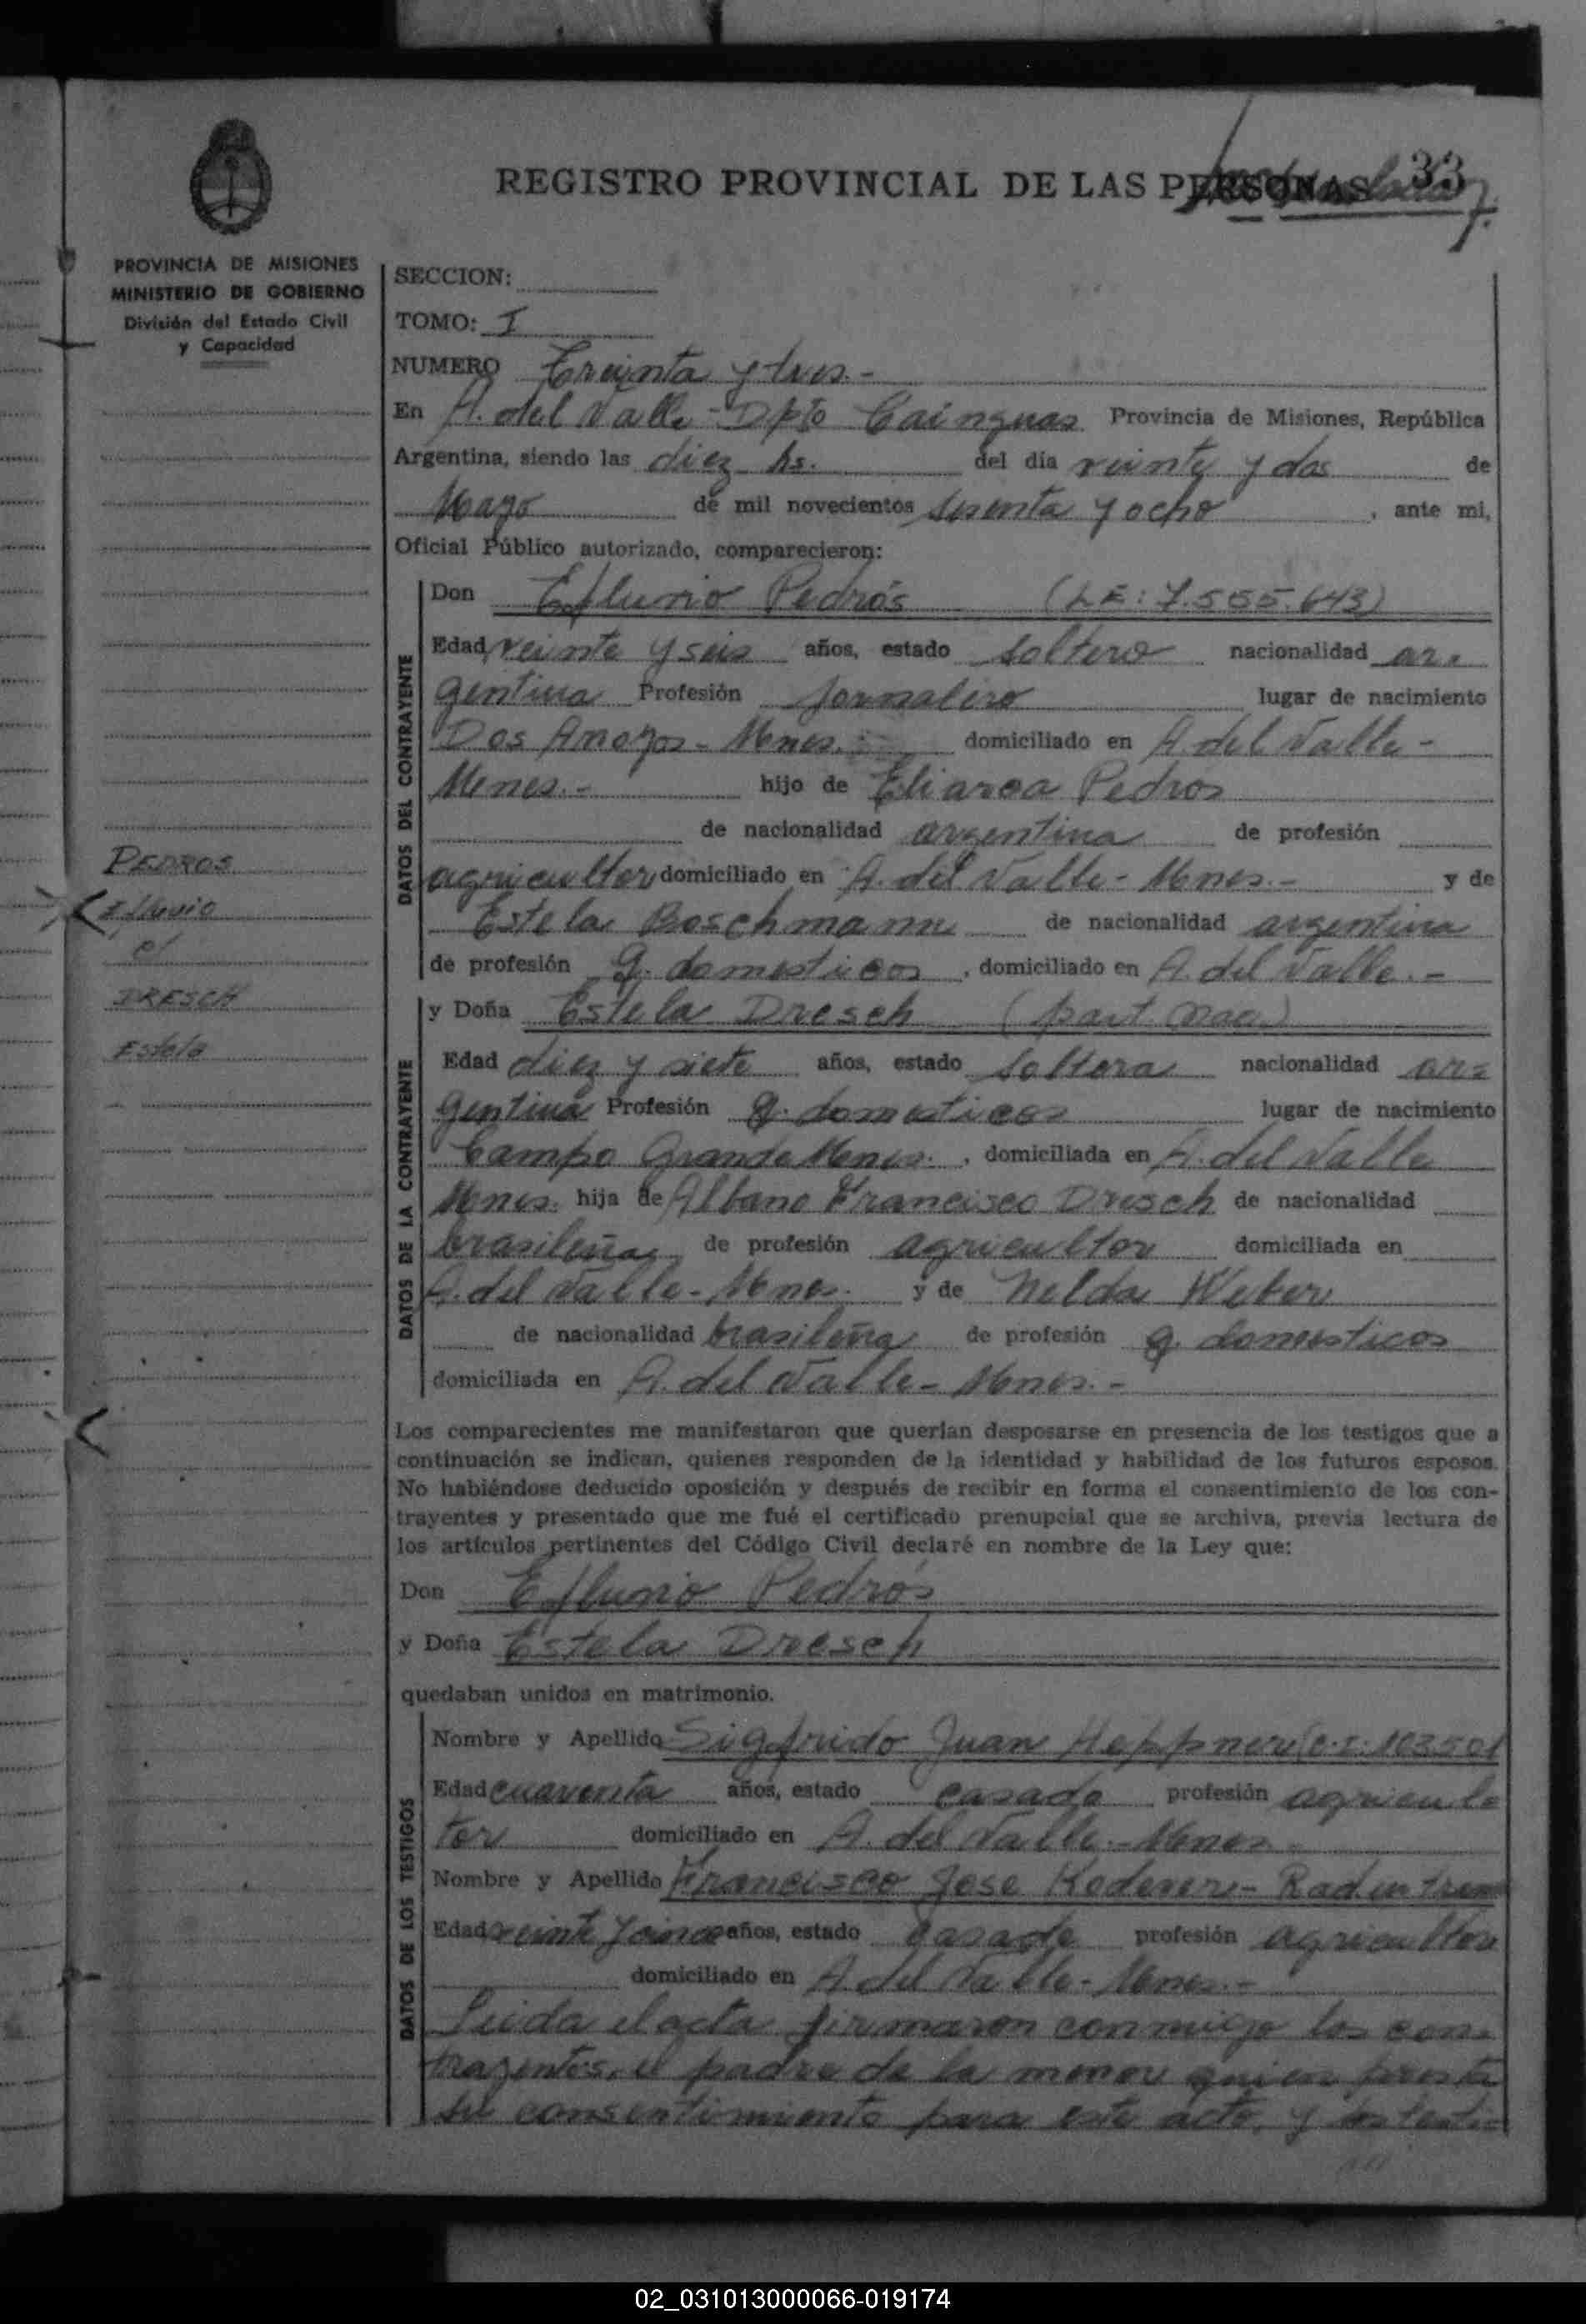 REGISTRO PROVINCIAL DE LAS PERSONAS 33
PROVINCIA DE MISIONES
MINISTERIO DE GOBIERNO
División del Estado Civil
y Capacidad
SECCION:
TOMO: I
NUMERO Treinta y tres.-
En A. del Valle - Dpto Cainguas Provincia de Misiones, República
Argentina, siendo las diez hs. del día veinte y dos de
Mayo de mil novecientos sesenta y ocho, ante mi,
Oficial Público autorizado, comparecieron:
DATOS DEL CONTRAYENTE
Don Efluvio Pedrós (LE: 7.555.643)
Edad veinte y seis años, estado soltero nacionalidad ar-
gentina Profesión Jornalero lugar de nacimiento
Dos Arroyos - Mnes. domiciliado en A. del Valle -
Mnes.- hijo de Eliarca Pedros
de nacionalidad argentina de profesión
agricultor domiciliado en A. del Valle - Mnes.- y de
Estela Boschmann de nacionalidad argentina
de profesión q. domesticos, domiciliado en A. del Valle.-
PEDROS
Efluvio
c/
DRESCH
Estela
DATOS DE LA CONTRAYENTE
y Doña Estela Dresch (part. nac.)
Edad diez y siete años, estado soltera nacionalidad ar-
gentina Profesión q. domesticos lugar de nacimiento
Campo Grande Mnes., domiciliada en A. del Valle
Mnes. hija de Albano Francisco Dresch de nacionalidad
brasileña, de profesión agricultor domiciliada en
A. del Valle - Mnes. y de Nelda Weber
de nacionalidad brasileña de profesión q. domesticos
domiciliada en A. del Valle - Mnes.-
Los comparecientes me manifestaron que querían desposarse en presencia de los testigos que a
continuación se indican, quienes responden de la identidad y habilidad de los futuros esposos.
No habiéndose deducido oposición y después de recibir en forma el consentimiento de los con-
trayentes y presentado que me fué el certificado prenupcial que se archiva, previa lectura de
los artículos pertinentes del Código Civil declaré en nombre de la Ley que:
Don Efluvio Pedrós
y Doña Estela Dresch
quedaban unidos en matrimonio.
DATOS DE LOS TESTIGOS
Nombre y Apellido Sigfrido Juan Heppner (C.I. 103.501
Edad cuarenta años, estado casado profesión agricul-
tor domiciliado en A. del Valle - Mnes.-
Nombre y Apellido Francisco Jose Kederer - Rad. en tram
Edad veinte y cinco años, estado casado profesión agricultor
domiciliado en A. del Valle - Mnes.-
Leida el acta firmaron conmigo los con-
trayentes, el padre de la menor quien presta
su consentimiento para este acto, y los testi-
02_031013000066-019174